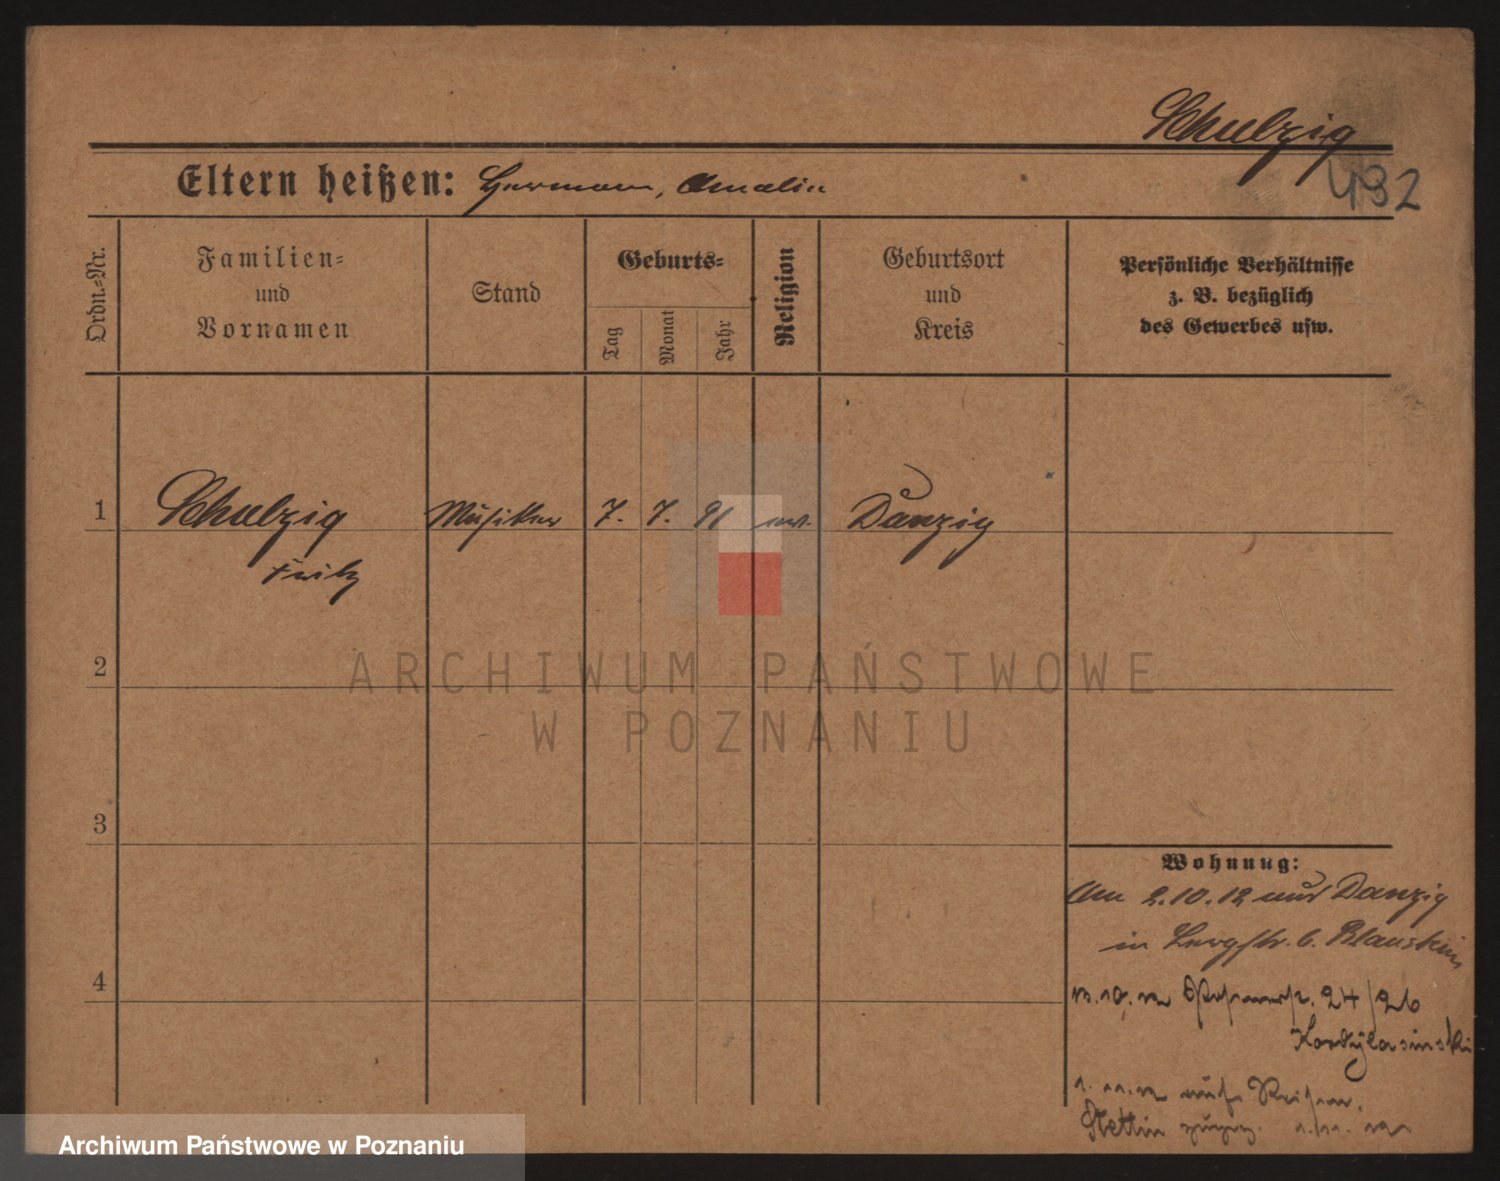 Schulzig
432
Eltern heißen: Hermann, Amalie
Ordn.=Nr.
Familien=
und
Vornamen
Stand
Geburts=
Tag
Monat
Jahr
Religion
Geburtsort
und
Kreis
Persönliche Verhältnisse
z. B. bezüglich
des Gewerbes usw.
1 Schulzig Musiker 7. 7. 91 ev. Danzig
Fritz
2
3
4
Wohnung:
Am 2.10.12 aus Danzig
in b.
13.10.12 24/26
Kordylasinski
1. 11. 12
Stettin 1.11.
ARCHIWUM PAŃSTWOWE
W POZNANIU
Archiwum Państwowe w Poznaniu